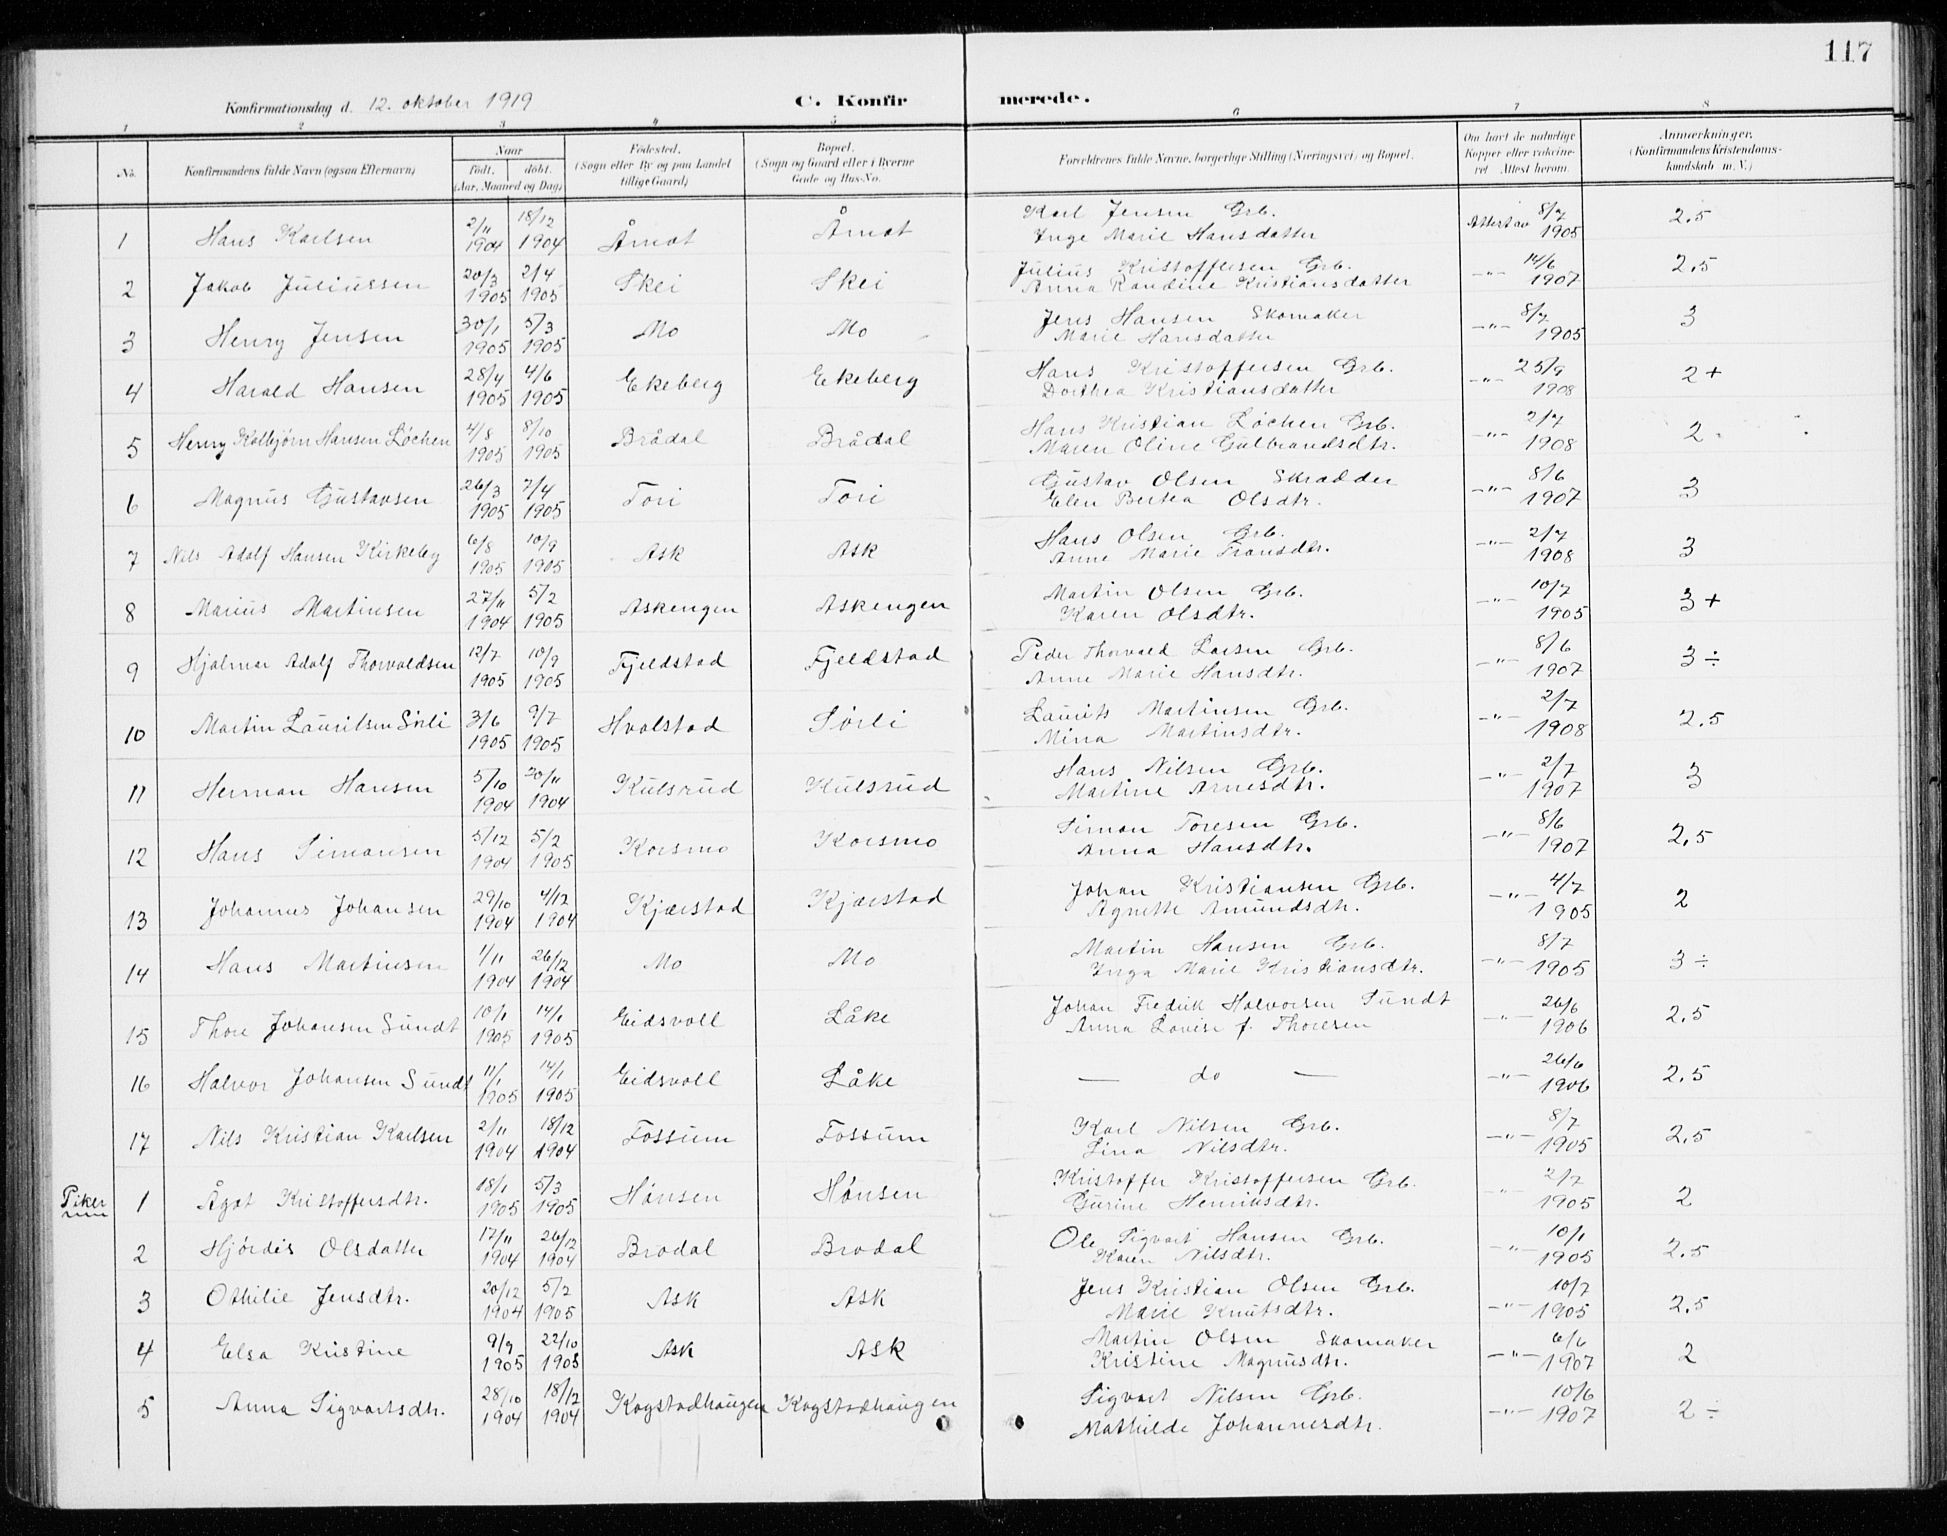 117
Konfirmationsdag d. 12. oktober 1919 C. Konfirmerede.
1 2 3 4 5 6 7 8
No. Konfirmandens fulde Navn (ogsaa Efternavn) Naar født. døbt. (Aar, Maaned og Dag) Fødested. (Sogn eller By og paa Landet tillige Gaard) Bopæl. (Sogn og Gaard eller i Byerne Gade og Hus-No. Forældrenes fulde Navne, borgerlige Stilling (Næringsvei) og Bopæl. Om havt de naturlige Kopper eller vakcineret. Attest herom. Anmærkninger. (Konfirmandens Kristendomskundskab m. V.)
1 Hans Karlsen 2/11 1904 18/12 1904 Årnot Årnot Karl Jensen Grb. Inge Marie Hansdatter Attest av 8/7 1905 2.5
2 Jakob Juliussen 20/3 1905 2/4 1905 Skei Skei Julius Kristoffersen Grb. Anna Randine Kristiansdatter —"— 14/6 1907 2.5
3 Henry Jensen 30/1 1905 5/3 1905 Mo Mo Jens Hansen Skomaker Marie Hansdatter —"— 8/7 1905 3
4 Harald Hansen 28/4 1905 4/6 1905 Ekeberg Ekeberg Hans Kristoffersen Grb. Dorthea Kristiansdatter —"— 25/9 1908 2+
5 Henry Kolbjørn Hansen Løchen 4/8 1905 8/10 1905 Brådal Brådal Hans Kristian Løchen Grb. Maren Oline Gulbrandsdtr. —"— 2/7 1908 2
6 Magnus Gustavsen 26/3 1905 7/4 1905 Tori Tori Gustav Olsen Skrædder Elen Bertea Olsdtr. —"— 8/6 1907 3
7 Nils Adolf Hansen Kirkeby 6/8 1905 10/9 1905 Ask Ask Hans Olsen Grb. Anne Marie Fransdtr. —"— 2/7 1908 3
8 Marius Martinsen 27/11 1904 5/2 1905 Askengen Askengen Martin Olsen Grb. Karen Olsdtr. —"— 10/7 1905 3+
9 Hjalmar Adolf Thorvaldsen 12/7 1905 10/9 1905 Fjeldstad Fjeldstad Peder Thorvald Larsen Grb. Anne Marie Hansdtr. —"— 8/6 1907 3÷
10 Martin Lauritsen Sørli 3/6 1905 9/7 1905 Hvalstad Sørli Laurits Martinsen Grb. Mina Martinsdtr. —"— 2/7 1908 2.5
11 Herman Hansen 5/10 1904 20/11 1904 Kulsrud Kulsrud Hans Nilsen Grb. Martine Arnesdtr. —"— 2/7 1907 3
12 Hans Simonsen 5/12 1904 5/2 1905 Korsmo Korsmo Simon Toresen Grb. Anna Hansdtr. —"— 8/6 1907 2,5
13 Johannes Johansen 29/10 1904 4/12 1904 Kjærstad Kjærstad Johan Kristiansen Grb. Agnethe Amundsdtr. —"— 4/7 1905 2
14 Hans Martinsen 1/11 1904 26/12 1904 Mo Mo Martin Hansen Grb. Inga Marie Kristiansdtr. —"— 8/7 1905 3÷
15 Thore Johansen Sundt 10/1 1905 14/1 1905 Eidsvoll Låke Johan Fredrik Halvorsen Sundt Anna Lovise f. Thoresen —"— 26/6 1906 2.5
16 Halvor Johansen Sundt 11/1 1905 14/1 1905 Eidsvoll Låke — do — —"— 26/6 1906 2.5
17 Nils Kristian Karlsen 2/11 1904 18/12 1904 Fossum Fossum Karl Nilsen Grb. Lina Nilsdtr. —"— 8/7 1905 2.5
Piker 1 Ågot Kristoffersdtr. 18/1 1905 5/3 1905 Hønsen Hønsen Kristoffer Kristoffersen Grb. Gurine Henriksdtr. —"— 2/7 1905 2
2 Hjørdis Olsdatter 17/11 1904 26/12 1904 Brodal Brodal Ole Sigvart Hansen Grb. Karen Nilsdtr. —"— 10/1 1905 2.5
3 Othilie Jensdtr. 20/12 1904 5/2 1905 Ask Ask Jens Kristian Olsen Grb. Marie Knutsdtr. —"— 10/7 1905 2.5
4 Elsa Kristine 9/9 1905 22/10 1905 Ask Ask Martin Olsen Skomaker Kristine Magnusdtr. —"— 6/6 1907 2
5 Anna Sigvartsdtr. 28/10 1904 18/12 1904 Kogstadhaugen Kogstadhaugen Sigvart Nilsen Grb. Mathilde Johannesdtr. —"— 10/6 1907 2÷